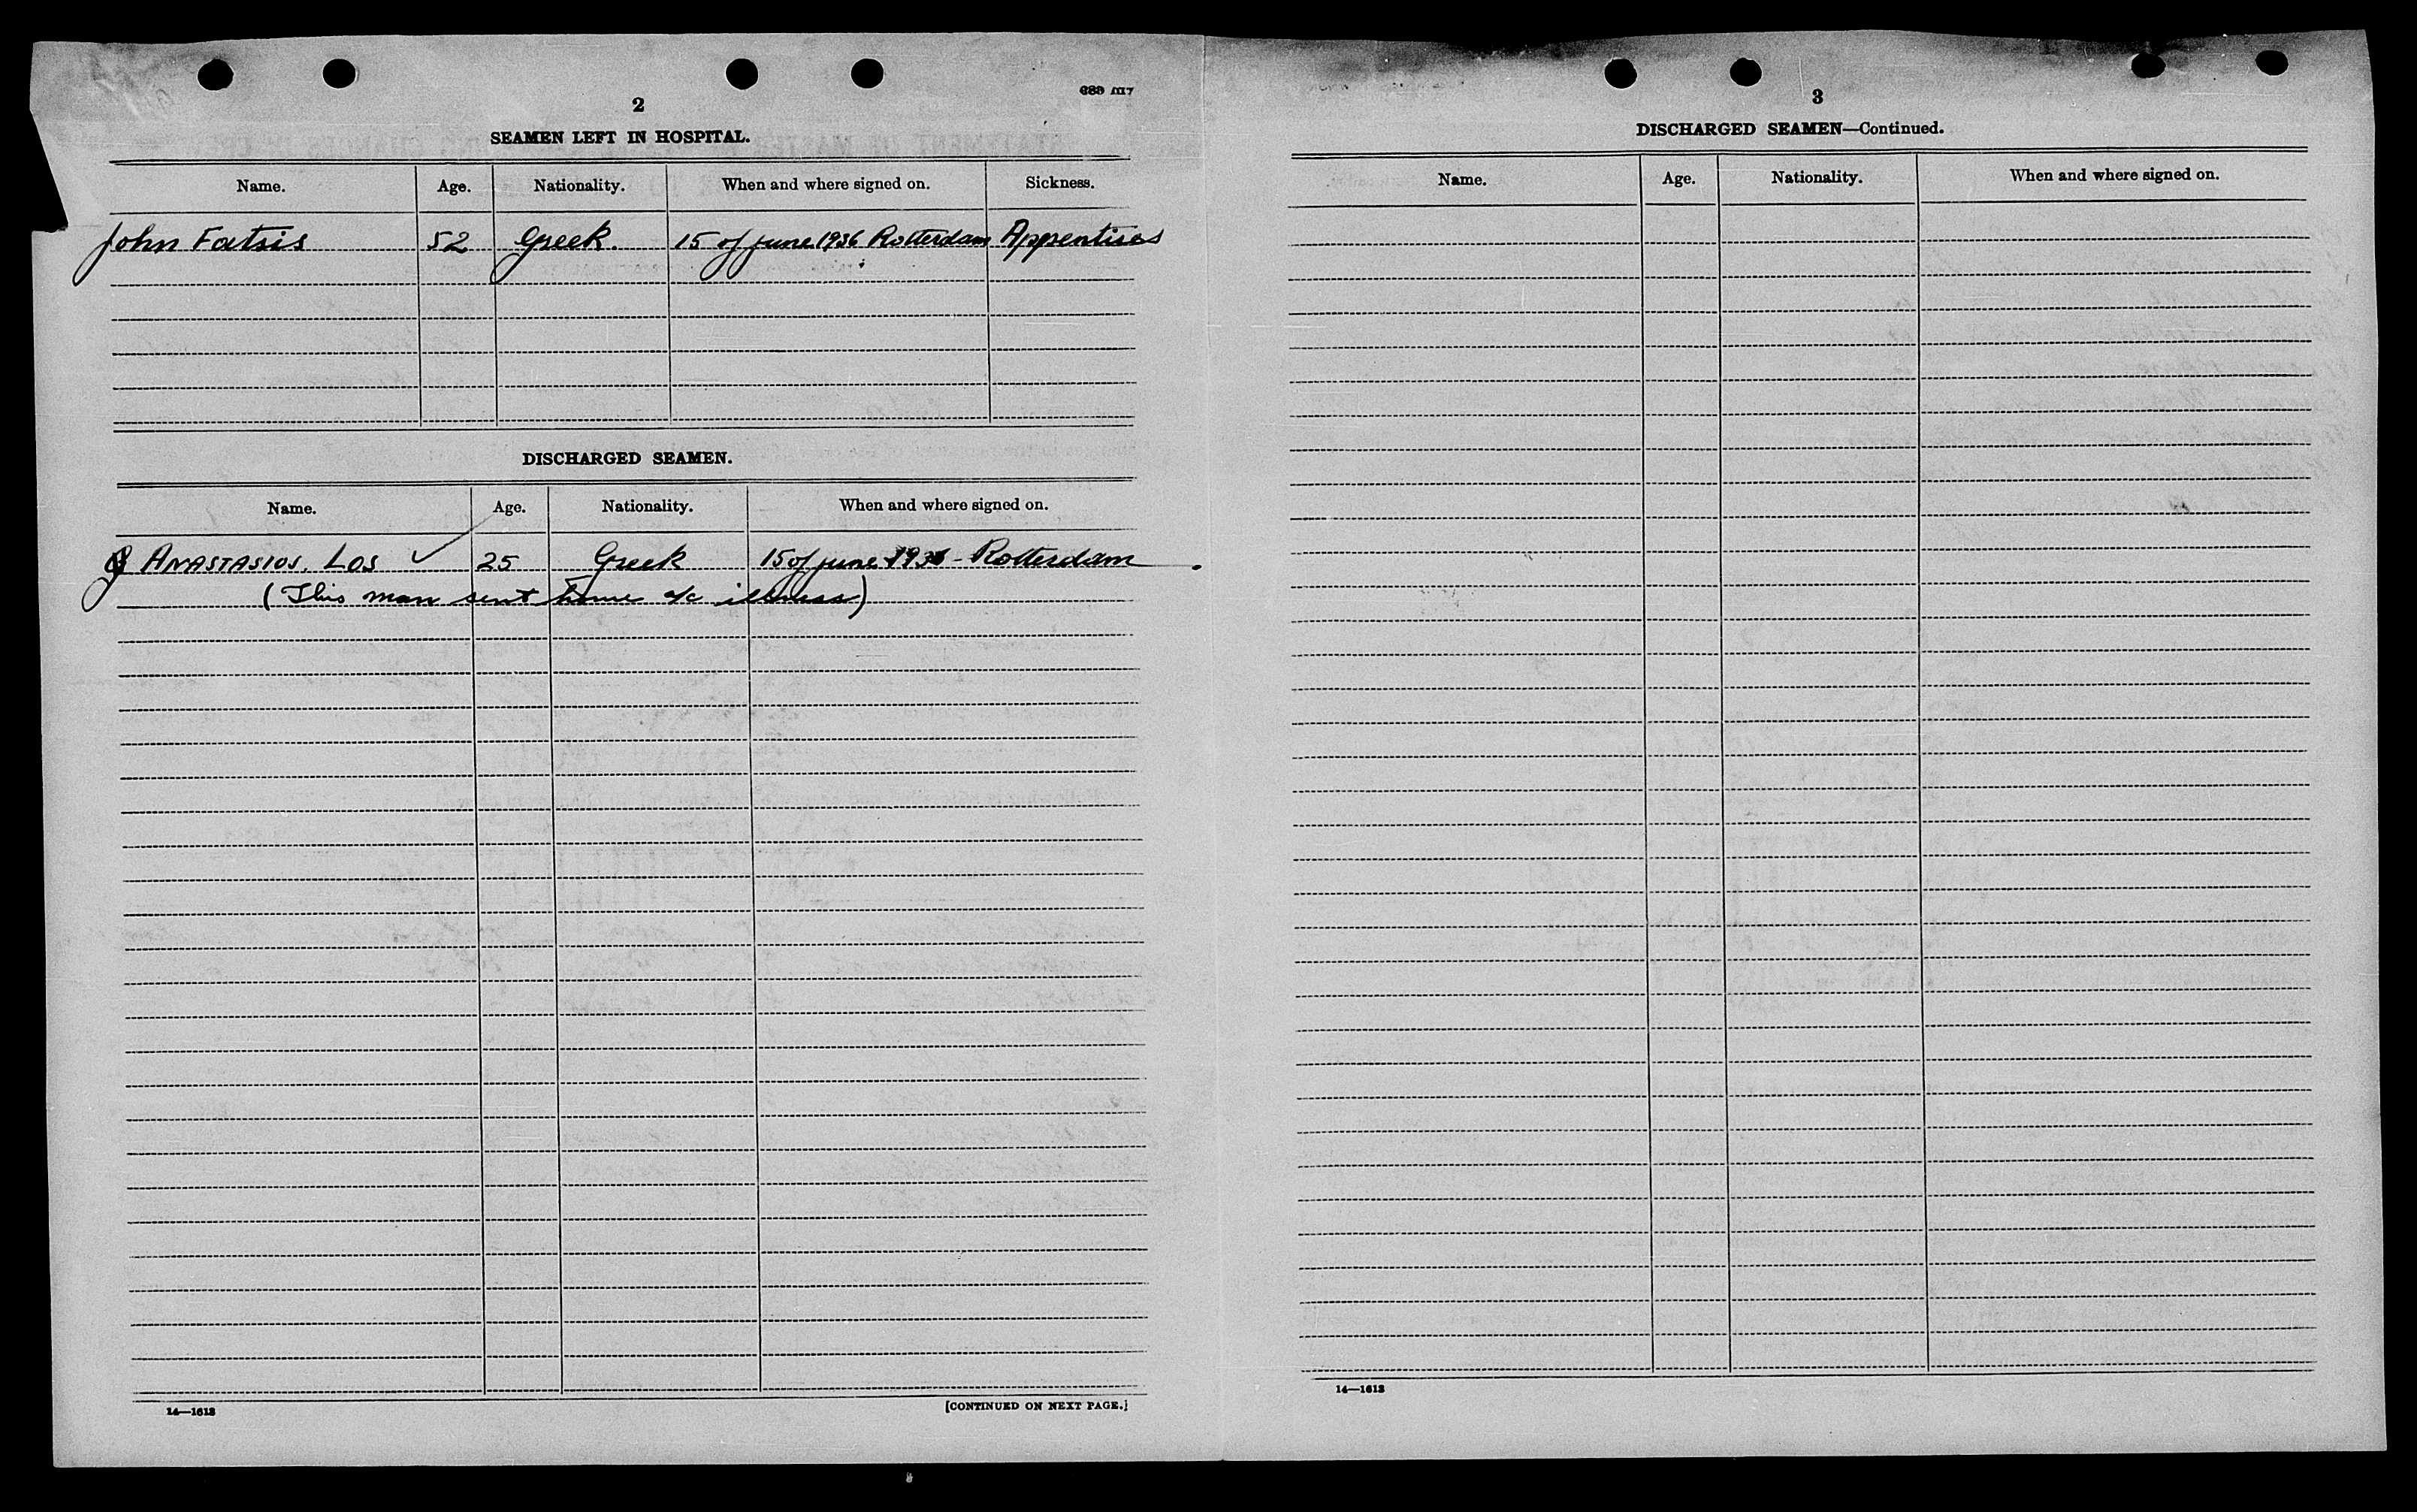 2
SEAMEN LEFT IN HOSPITAL.
Name. Age. Nationality. When and where signed on. Sickness.
John Fatsis 52 Greek. 15 of june 1936 Rotterdam Appentises
DISCHARGED SEAMEN.
Name. Age. Nationality. When and where signed on.
ANASTASIOS. LOS ✓ 25 Greek 15 of june 1936 - Rotterdam
(This man sent home a/c illness)
14—1613
[CONTINUED ON NEXT PAGE.]
3
DISCHARGED SEAMEN—Continued.
Name. Age. Nationality. When and where signed on.
14—1613